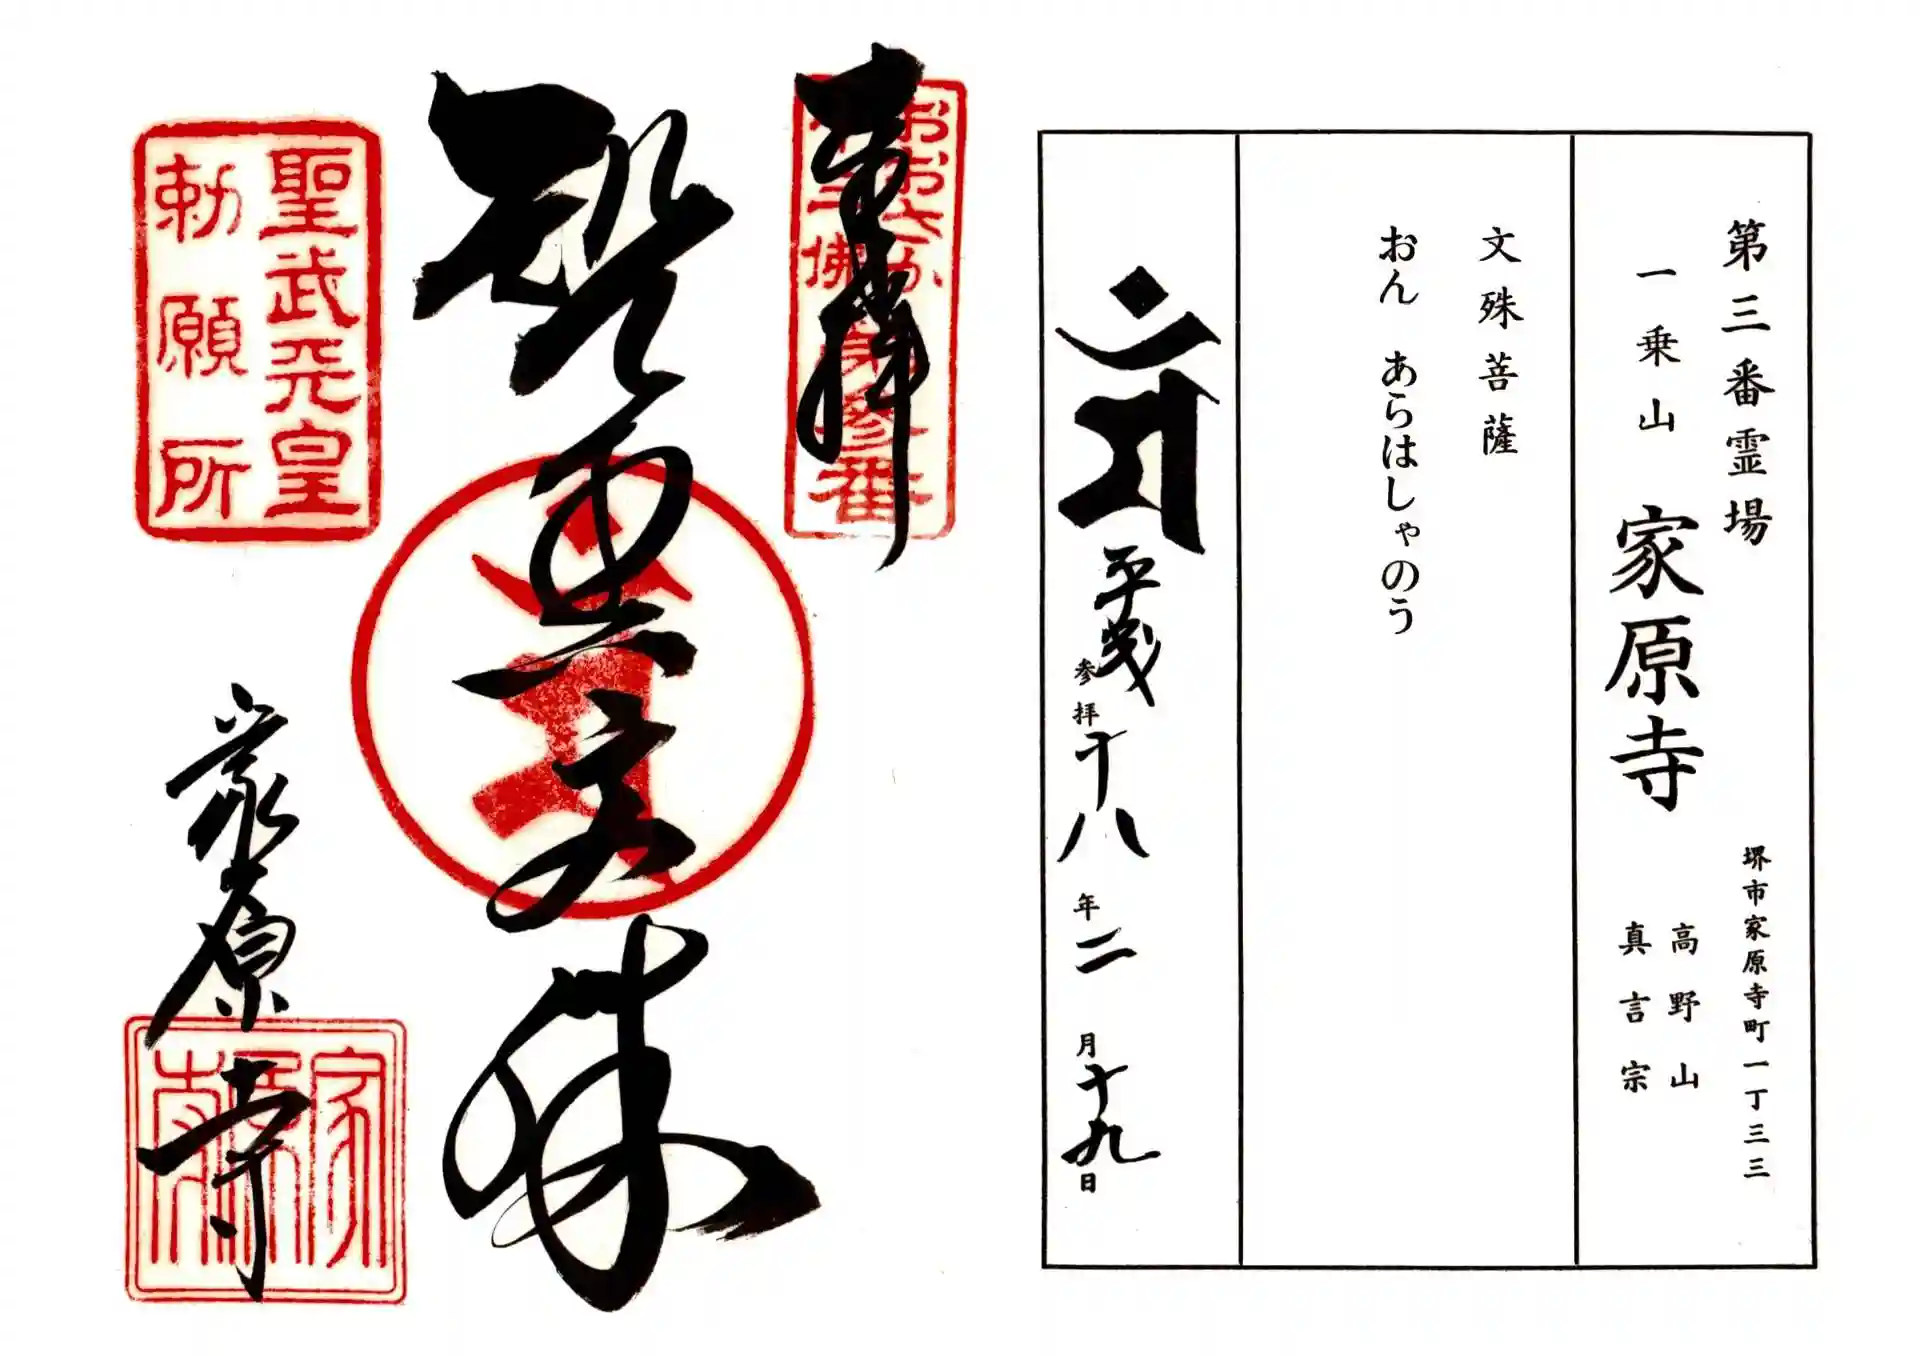 第三番霊場
一乗山 家原寺
堺市家原寺町一丁三三
高野山
真言宗
文殊菩薩
おん あらはしゃのう
平成
参拝十八年二月十九日
奉拝
第参番
聖武天皇
勅願所
文殊
家原寺